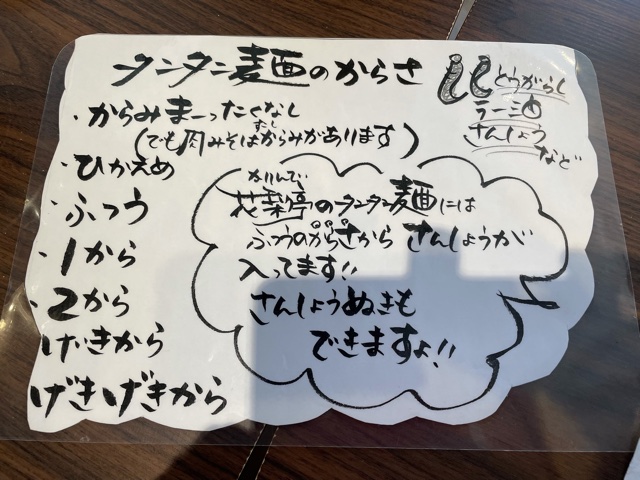 タンタン麺のからさ
とうがらし
ラー油
さんしょう
など
・からみまーったくなし
(でも肉みそはすこしからみがあります)
・ひかえめ
・ふつう
・1から
・2から
げきから
げきげきから
かりんてい
花梨亭のタンタン麺には
ふつうのからさから さんしょうが
入ってます!!
さんしょうぬきも
できますよ!!